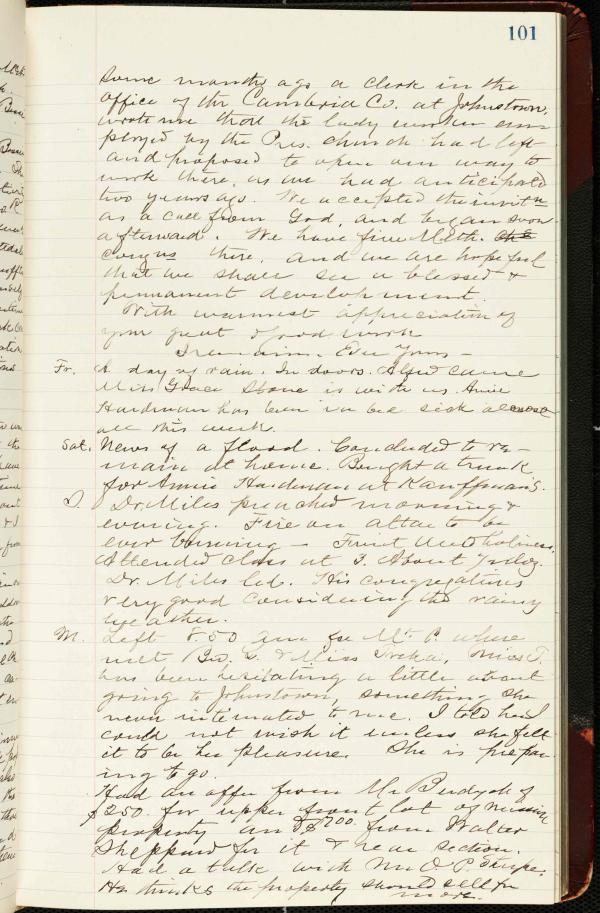 101
Some months ago a clerk in the
office of the Cambria Co. at Johnstown,
wrote me that the lady worker em-
ployed by the Pres. church had left
and proposed to open our way to
work there, as we had anticipated
two years ago. We accepted the invitn
as a call from God, and began soon
afterward. We have fine Meth.
congns there, and we are hopeful
that we shall see a blessed &
permanent development.
With warmest appreciation of
your great & good work
I remain. Ever Yours—
Fr. A day of rain. In doors. Alfred came
Miss Grace Stone is with us. Annie
Hardman has been in bed sick almost
all this week.
Sat. News of a flood. Concluded to re-
main at home. Bought a trunk
for Annie Hardman at Kauffman's.
S. Dr. Miles preached morning &
evening. Fire on altar to be
ever burning — Fruit unto holiness.
Attended class at 3. About
Dr. Miles led. His congregations
very good considering the rainy
weather.
M. Left 8.50 am for Mt. P. where
met Bro. & Miss . Miss T.
has been hesitating a little about
going to Johnstown, something she
never intimated to me. I told her I
could not wish it unless she felt
it to be her pleasure. She is prepar-
ing to go.
Had an offer from Mr. of
$250. for upper front lot of mission
property and $700. from Walter
Sheppard for it & rear section.
Had a talk with Mr. O. P.
He thinks the property should sell for
more.